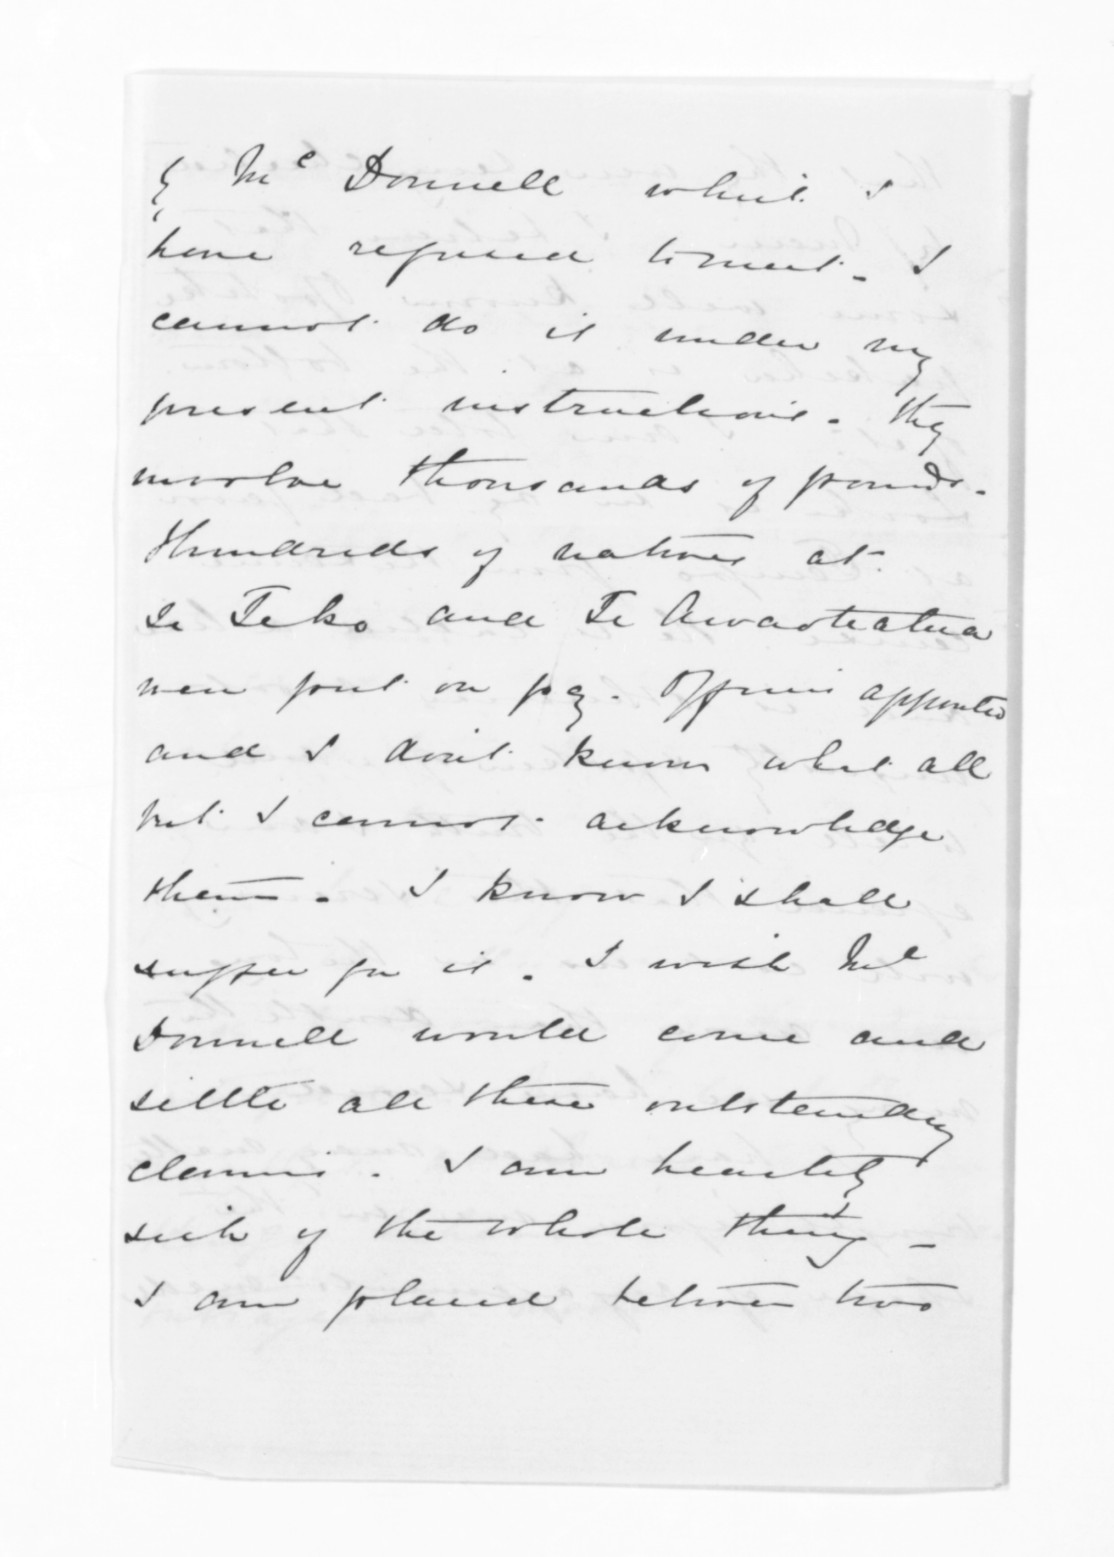 by McDonnell which I
have refused to meet - I
cannot do it under my
present instructions. they
involve thousands of pounds.
Hundreds of natives at
Te Teko and Te Awaoteatua
men put on pay. Officers appointed
and I dont know what all
but I cannot acknowledge
them. I know I shall
suffer for it. I wish Mc
Donnell would come and
settle all these outstanding
claims. I am heartily
sick of the whole thing -
I am placed between two